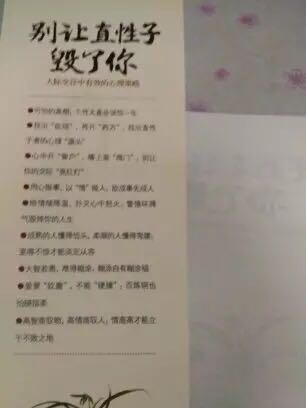 别让直性子
毁了你
人际交往中有效的心理策略
●可怕的真相:个性太直会误你一生
●找出“症结”,再开“药方”,找出直性
子者的心理“源头”
心中开“窗户”,嘴上装“阀门”,别让
你的交际“亮红灯”
●用心做事,以“情”做人,欲成事先成人
●给情绪降温,扑灭心中怒火,警惕坏脾
气毁掉你的人生
●成熟的人懂得低头,柔韧的人懂得弯腰;
宠辱不惊才能淡定从容
●大智若愚,难得糊涂,糊涂自有糊涂福
●要要“软磨”,不能“硬撞”;百炼钢也
怕绕指柔
●高智商驭物,高情商驭人;情商高才能立
于不败之地